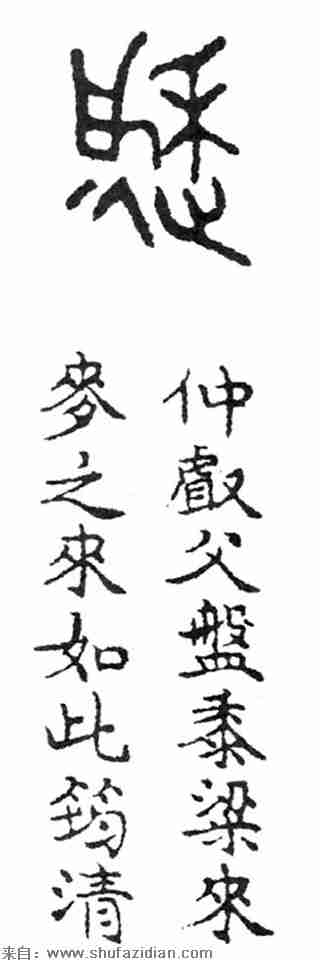 仲𠭯父盤黍梁來
麥之來如此筠清
来自：www.shufazidian.com